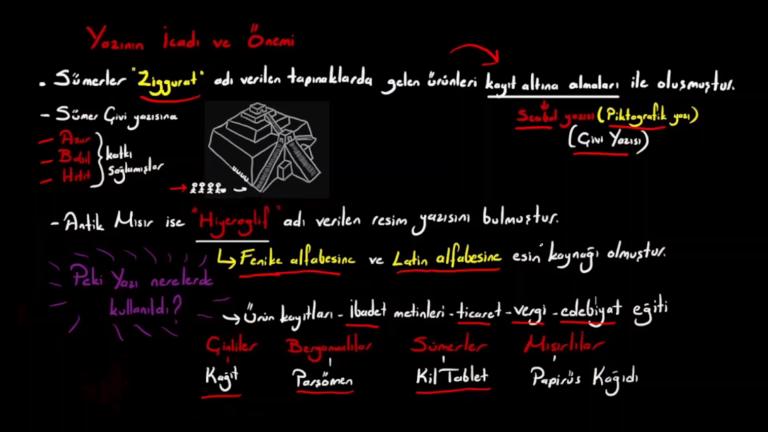 Yazının İcadı ve Önemi
- Sümerler "Ziggurat" adı verilen tapınaklarda gelen ürünleri kayıt altına almaları ile oluşmuştur.
Sembol yazısı (Piktografik yazı)
(Çivi Yazısı)
- Sümer Çivi yazısına
- Asur
- Babil
- Hitit
katkı
sağlamışlar
- Antik Mısır ise "Hiyeroglif" adı verilen resim yazısını bulmuştur.
Fenike alfabesine ve Latin alfabesine esin kaynağı olmuştur.
Peki Yazı nerelerde
kullanıldı?
Ürün kayıtları - ibadet metinleri - ticaret - vergi - edebiyat eğiti
Çinliler Bergamalılar Sümerler Mısırlılar
Kağıt Parşömen Kil Tablet Papirüs Kağıdı